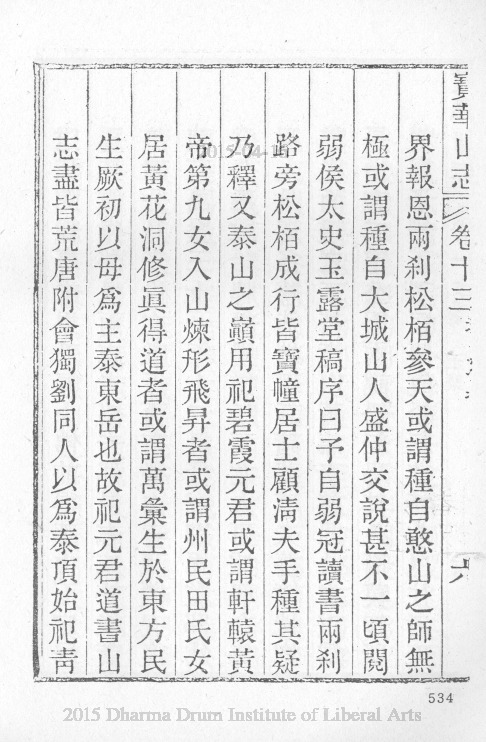 寶華山志 卷十三 六
界報恩兩刹松栢參天或謂種自憨山之師無
極或謂種自大城山人盛仲交說甚不一頃閱
弱侯太史玉露堂稿序曰予自弱冠讀書兩刹
路旁松栢成行皆寶幢居士顧淸夫手種其疑
乃釋又泰山之巔用祀碧霞元君或謂軒轅黃
帝第九女入山煉形飛昇者或謂州民田氏女
居黃花洞修眞得道者或謂萬彙生於東方民
生厥初以母爲主泰東岳也故祀元君道書山
志盡皆荒唐附會獨劉同人以爲泰頂始祀靑
534
2015 Dharma Drum Institute of Liberal Arts